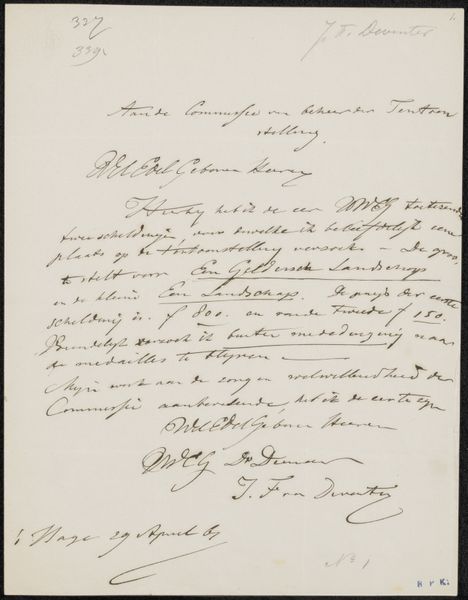 327
339.
J. F. Deventer
1.
Aan de Commissie van beheer der Tentoon
stelling.
WelEdelGeboren Heeren
Hierby heb ik de eer UWEG toetezenden
twee schilderijen, voor dewelke ik beleefdelijk eene
plaats op de tentoonstelling verzoeke – De groo,
te stelt voor Een Geldersch Landschap
en de kleine Een Landschap. De prijs der eerste
schilderij is f 800. en van de tweede f 150.
Vriendelijk verzoek ik buiten mededinging naar
de medailles te blyven
Mijn werk aan de zorg en welwillendheid der
Commissie aanbevelende heb ik de eer te zijn
WelEdelGeboren Heeren
UWEG Dw Dienaar
J. F. van Deventer
's Hage 29 April 67
No 1
R P K.